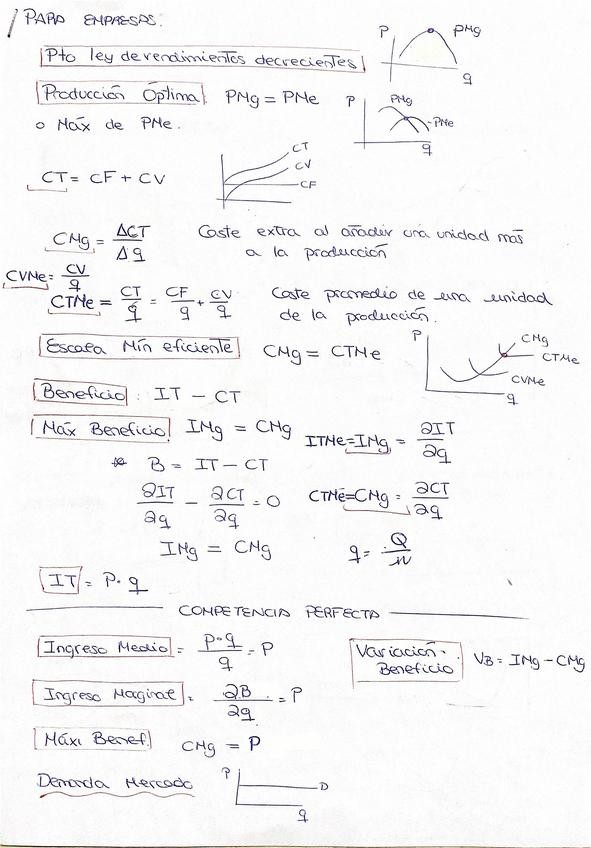 / PARA EMPRESAS:
P PMg q
Pto ley de rendimientos decrecientes
Producción Óptima: PMg = PMe
P PMg PMe q
o Máx de PMe.
CT = CF + CV
CT CV CF
CMg = ΔCT / Δq Coste extra al añadir una unidad más
a la producción
CVMe = CV / q
CTMe = CT / q = CF / q + CV / q Coste promedio de una unidad
de la producción.
Escala Mín eficiente CMg = CTMe
P CMg CTMe CVMe q
Beneficio: IT - CT
Máx Beneficio IMg = CMg ITMe = IMg = ∂IT / ∂q
B = IT - CT
∂IT / ∂q - ∂CT / ∂q = 0 CTMe = CMg = ∂CT / ∂q
IMg = CMg q = Q / N
IT = P · q
COMPETENCIA PERFECTA
Ingreso Medio = P·q / q = P
Variación Beneficio VB = IMg - CMg
Ingreso Maginal = ∂B / ∂q = P
Máxi Benef. CMg = P
Demanda Mercado
P D q